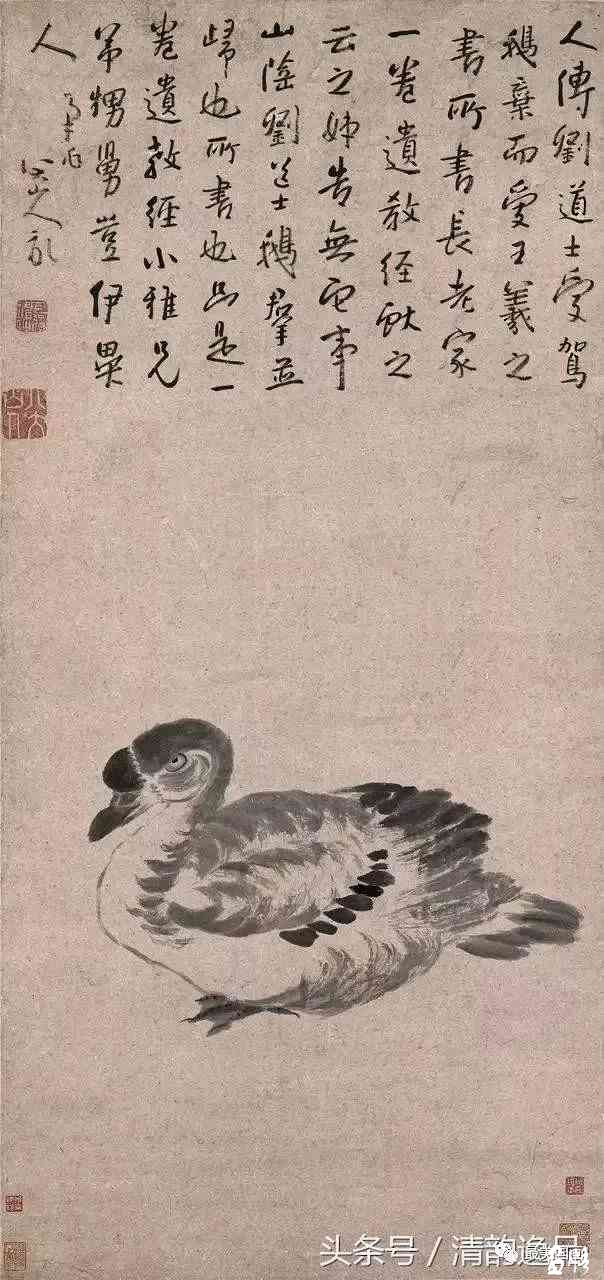 人傳劉道士受駕
鵝棄而愛王羲之
書所書長老家
一卷遺教經獻之
云之姊告無它事
山陰劉道士鵝羣並
歸也所書也只是一
卷遺教經小雅兄
弟甥舅豈伊異
人
八大山人
头条号 / 清韵逸品